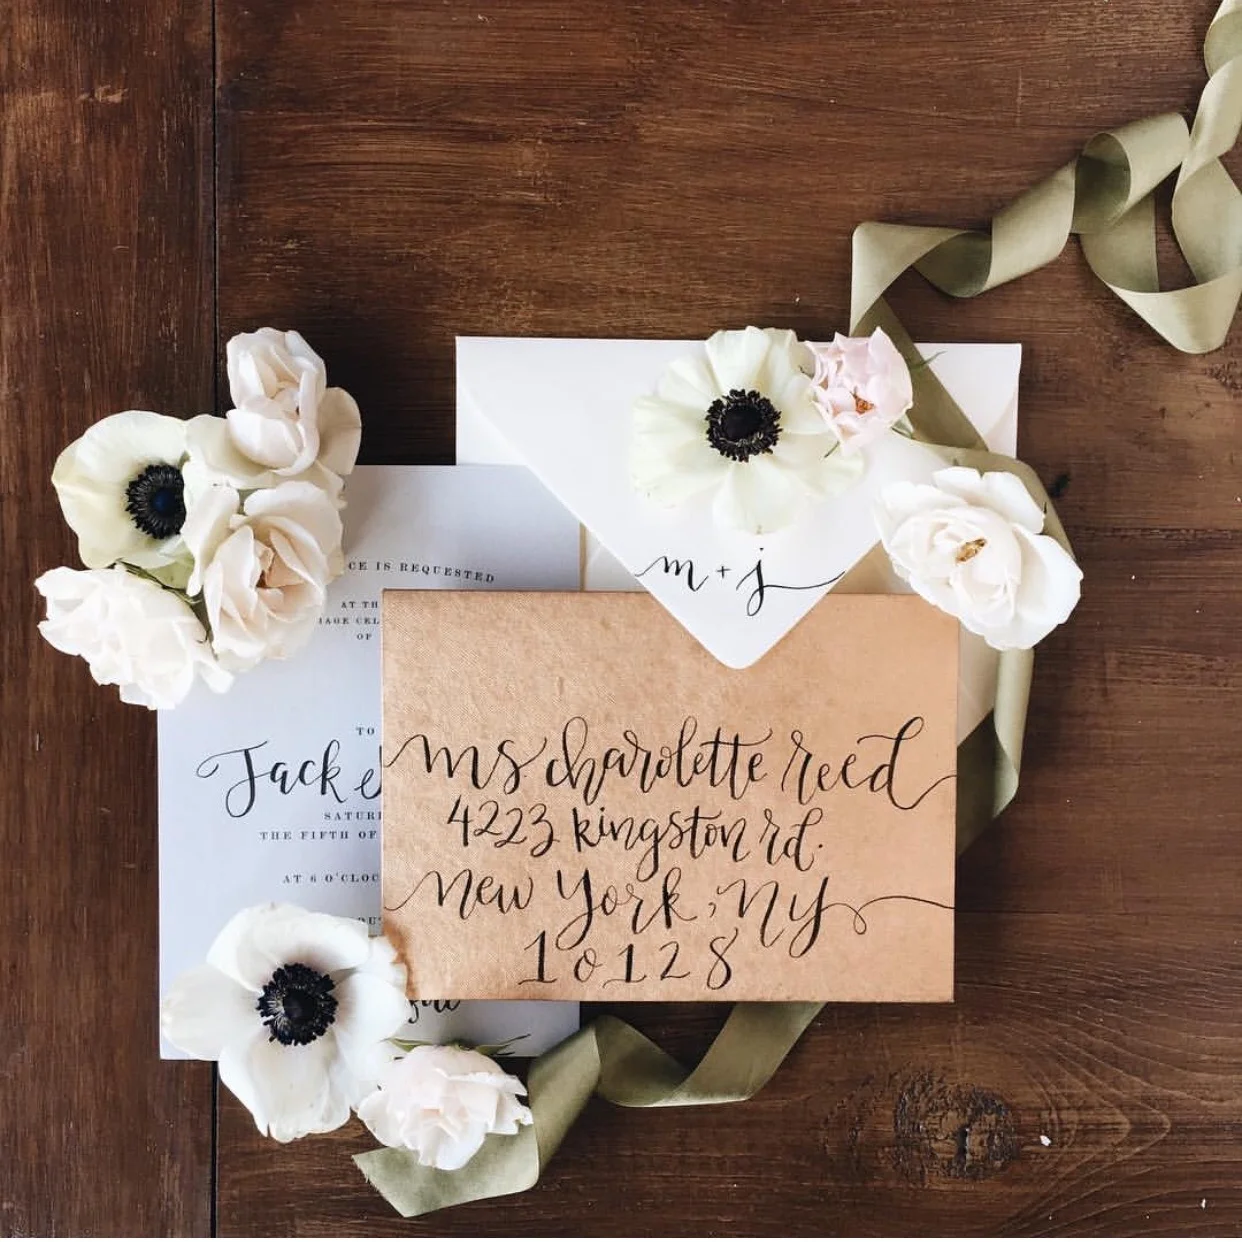 m + j
CE IS REQUESTED
AT TH
IAGE CEL
OF
TO
Jack e
SATUR
THE FIFTH OF
AT 6 O'CLOC
ms charolette reed
4223 kingston rd.
new york, ny
10128